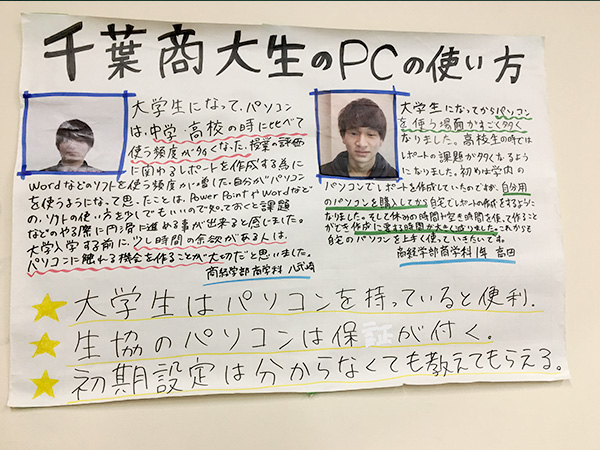 千葉商大生のPCの使い方
大学生になって、パソコン
は、中学・高校の時に比べて
使う頻度が多くなった。授業の評価
に関わるレポートを作成する為に
Wordなどのソフトを使う頻度が増した。自分がパソコン
を使うようになって思ったことは、Power PointやWordなど
の、ソフトの使い方を少しでもいいので知っておくと課題
などのやる際に円滑に進める事が出来ると感じました。
大学入学する前に、少し時間の余欲がある人は、
パソコンに触れる機会を作ることが大切だと思いました。
商経学部商学科 八武崎
大学生になってからパソコン
を使う場面がすごく多く
なりました。高校生の時では
レポートの課題が多くなるよう
になりました。初めは学内の
パソコンでレポートを作成していたのですが、自分用
のパソコンを購入してから自宅でレポートの作成をするように
なりました。そして休みの時間や空き時間を使って作ること
ができ作成に要する時間が大きく減りました。これからも
自宅のパソコンを上手く使っていきたいです。
商経学部商学科1年 高田
大学生はパソコンを持っていると便利.
生協のパソコンは保証が付く。
初期設定は分からなくても教えてもらえる。